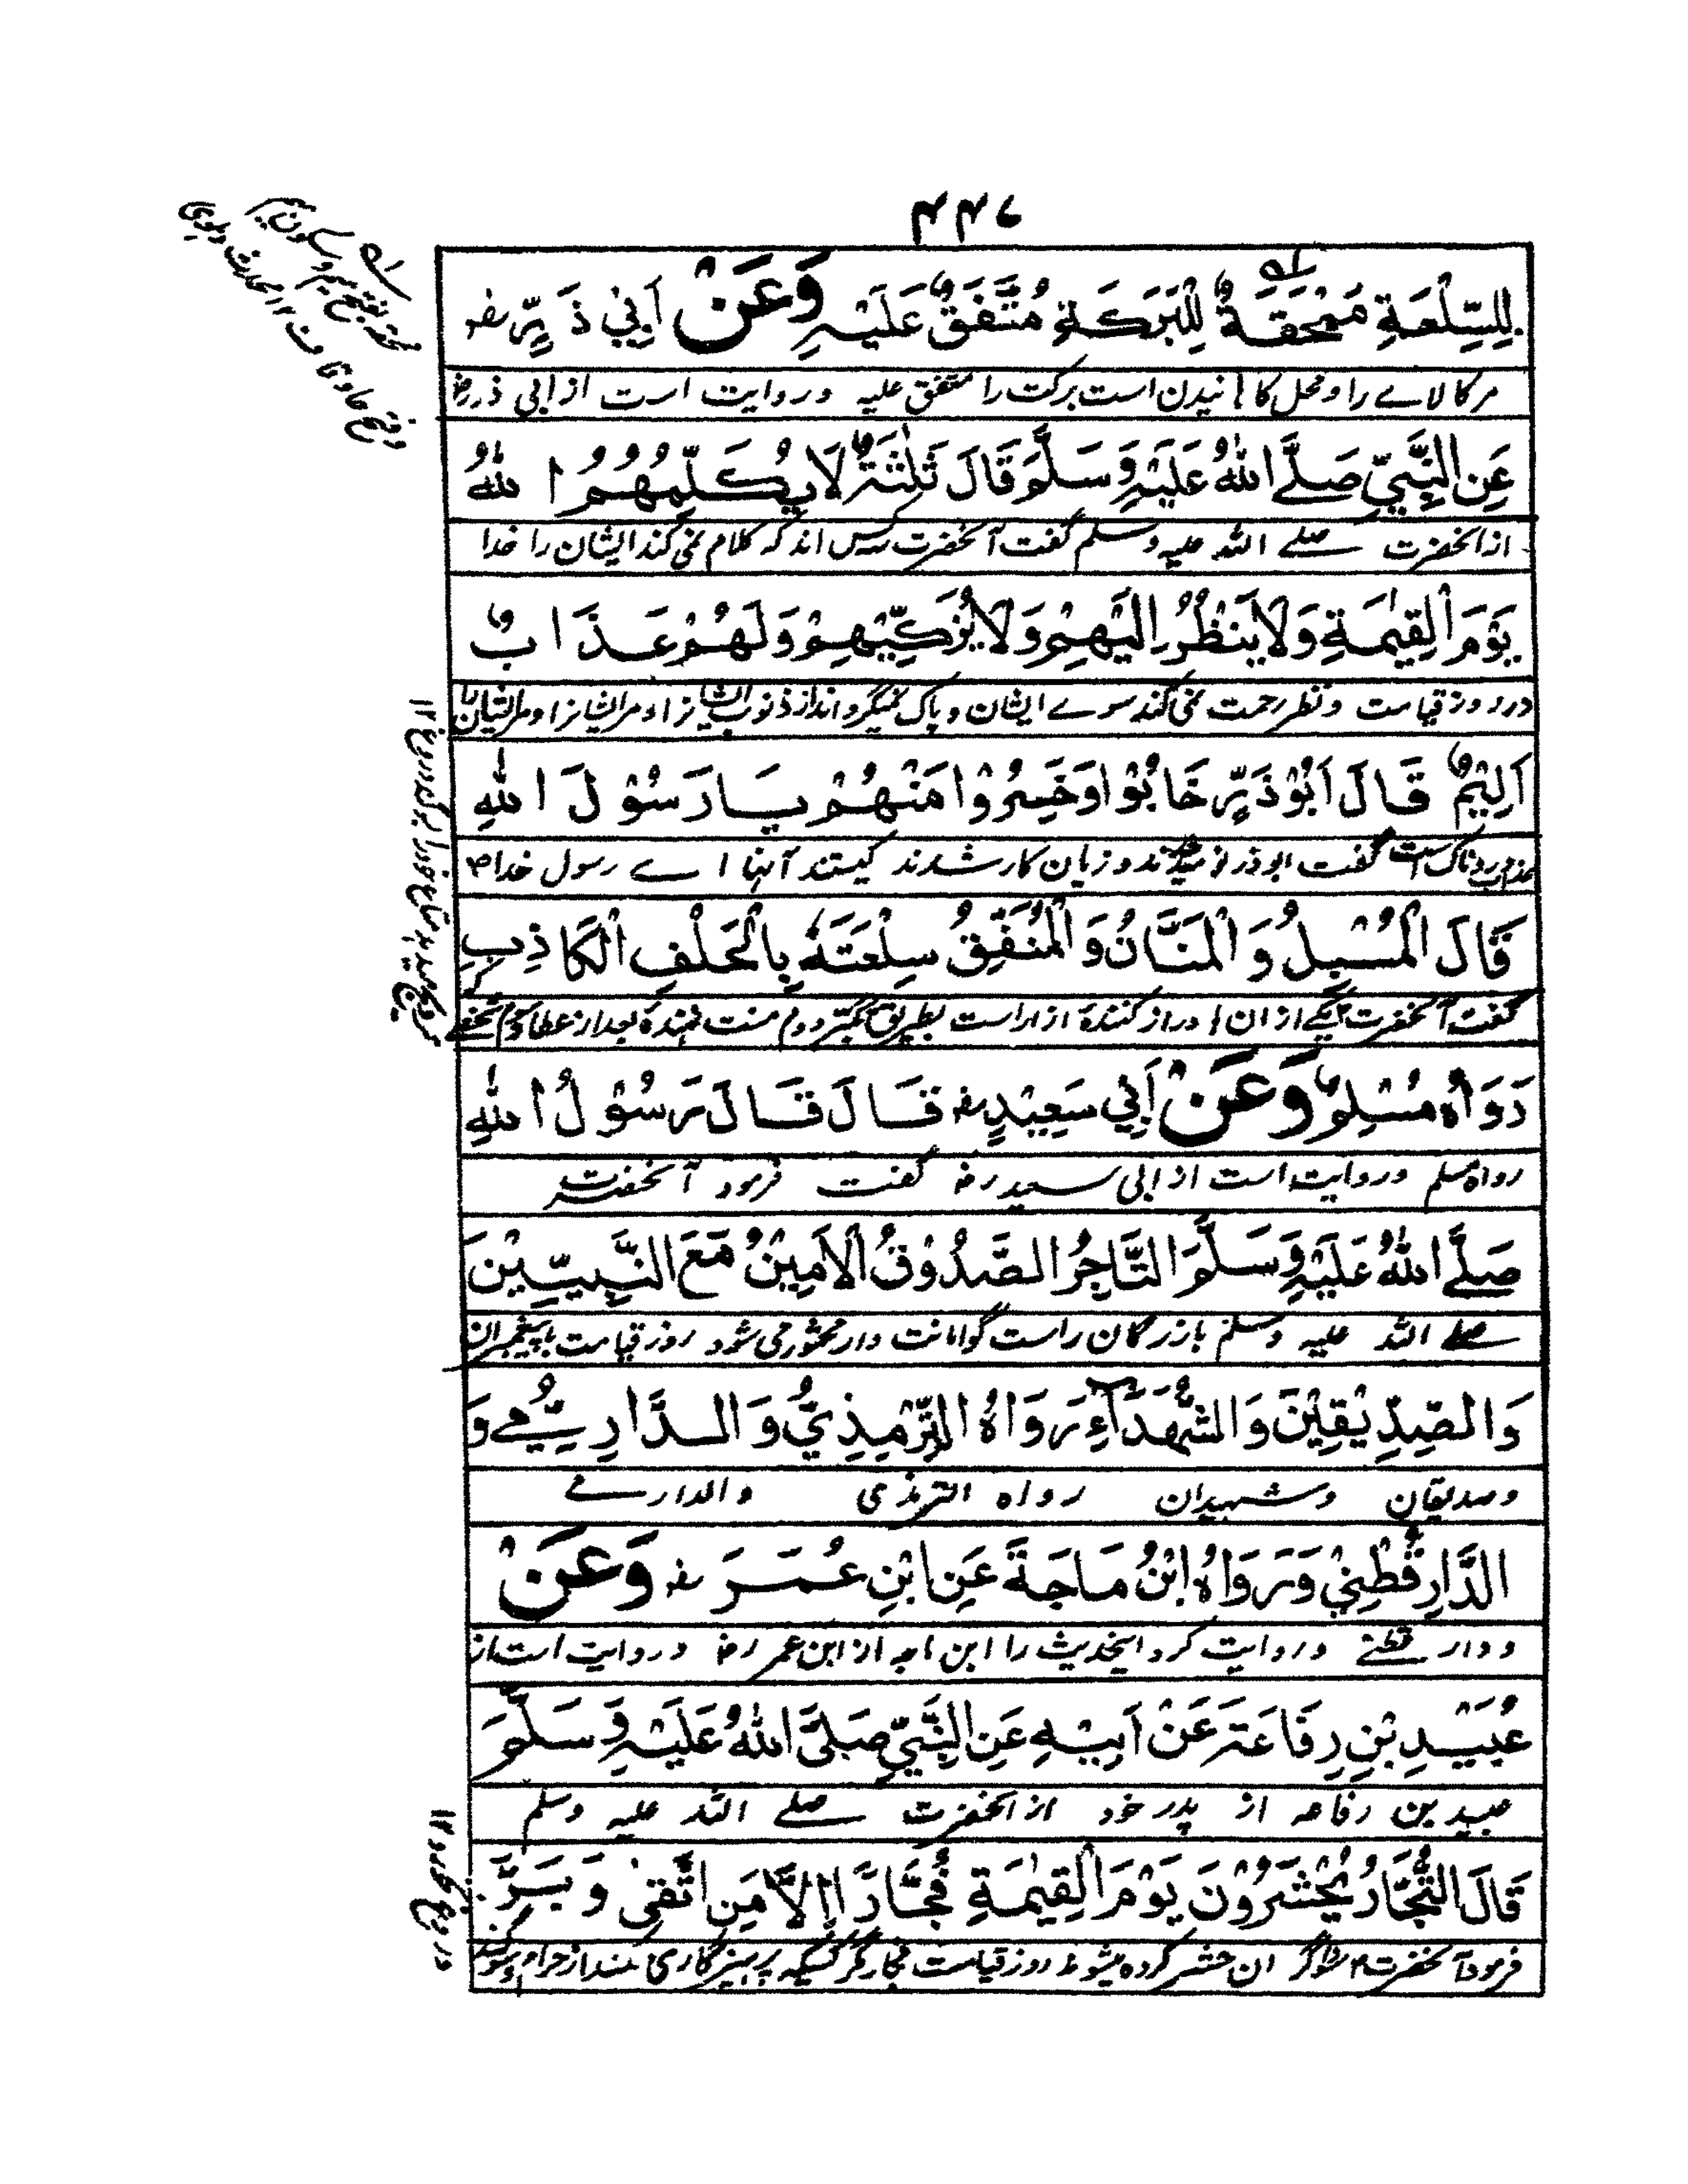 ۴۴۶
لِلسِّلْعَةِ مَمْحَقَةٌ لِلْبَرَكَةِ مُتَّفَقٌ عَلَيْهِ وَعَنْ اَبِيْ ذَرٍّ رض
مر کالاے را و محل کاہانیدن است برکت را متفق علیہ و روایت است از ابی ذر رض
عَنِ النَّبِيِّ صَلَّے اللهُ عَلَيْهِ وَسَلَّمَ قَالَ ثَلٰثَةٌ لَا يُكَلِّمُهُمُ اللهُ
از آنحضرت صلے اللہ علیہ وسلم گفت آنحضرت سہ کس اند کہ کلام نمی کند ایشان را خدا
يَوْمَ الْقِيٰمَةِ وَلَا يَنْظُرُ اِلَيْهِمْ وَلَا يُزَكِّيْهِمْ وَلَهُمْ عَذَابٌ
در روز قیامت و نظر رحمت نمی کند سوے ایشان و پاک نمیگرداند از ذنوب ایشانرا و مر ایشانرا
اَلِيْمٌ قَالَ اَبُوْ ذَرٍّ خَابُوْا وَخَسِرُوْا مَنْ هُمْ يَا رَسُوْلَ اللهِ
عذاب دردناک است گفت ابوذر نومید شدند و زیان کار شدند کیستند آنہا اے رسول خدا
قَالَ الْمُسْبِلُ وَالْمَنَّانُ وَالْمُنَفِّقُ سِلْعَتَهٗ بِالْحَلْفِ الْكَاذِبِ
گفت آنحضرت یکے از ان ہا دراز کنندۂ ازار است بطریق تکبر دوم منت نہندہ بعد از عطا سوم شخصے کہ
رَوَاهُ مُسْلِمٌ وَعَنْ اَبِيْ سَعِيْدٍ رض قَالَ قَالَ رَسُوْلُ اللهِ
رواہ مسلم و روایت است از ابی سعید رض گفت فرمود آنحضرت
صَلَّے اللهُ عَلَيْهِ وَسَلَّمَ التَّاجِرُ الصَّدُوْقُ الْاَمِيْنُ مَعَ النَّبِيِّيْنَ
صلے اللہ علیہ وسلم بازرگان راست گو امانت دار محشور می شود روز قیامت با پیغمبران
وَالصِّدِّيْقِيْنَ وَالشُّهَدَآءِ رَوَاهُ التِّرْمِذِيُّ وَالدَّارِمِيُّ وَ
و صدیقان و شہیدان رواہ الترمذی والدارمے
الدَّارِقُطْنِيْ وَرَوَاهُ ابْنُ مَاجَةَ عَنِ ابْنِ عُمَرَ رض وَعَنْ
و دار قطنے و روایت کرد اینحدیث را ابن ماجہ از ابن عمر رض و روایت است از
عُبَيْدِ بْنِ رِفَاعَةَ عَنْ اَبِيْهِ عَنِ النَّبِيِّ صَلَّى اللهُ عَلَيْهِ وَسَلَّمَ
عبید بن رفاعہ از پدر خود از آنحضرت صلے اللہ علیہ وسلم
قَالَ التُّجَّارُ يُحْشَرُوْنَ يَوْمَ الْقِيٰمَةِ فُجَّارًا اِلَّا مَنِ اتَّقٰى وَبَرَّ
فرمود آنحضرت سوداگر ان حشر کردہ میشوند روز قیامت فجار مگر کسیکہ پرہیزگاری کند از حرام